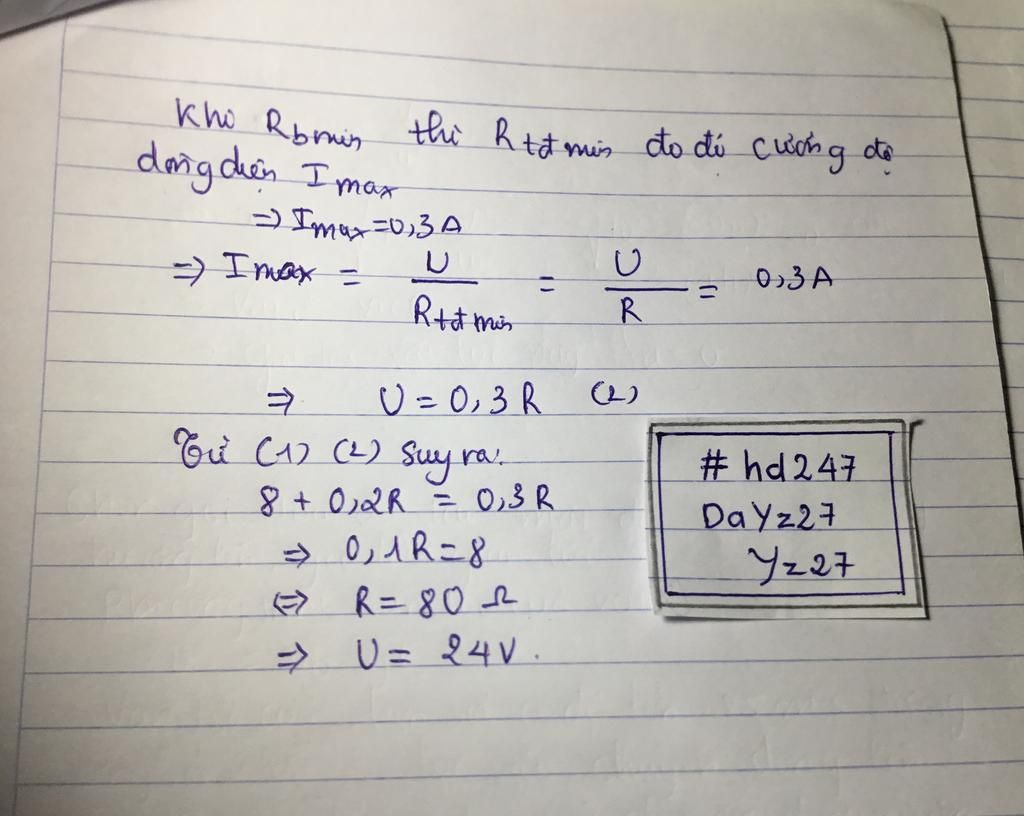 Khi Rbmin thì Rtđmin do đó cường độ
dòng điện Imax
=> Imax = 0,3A
=> Imax = U / Rtđmin = U / R = 0,3A
=> U = 0,3R (2)
Từ (1) (2) suy ra:
8 + 0,2R = 0,3R
=> 0,1R = 8
<=> R = 80 Ω
=> U = 24V.
#hd247
DaYz27
Yz27